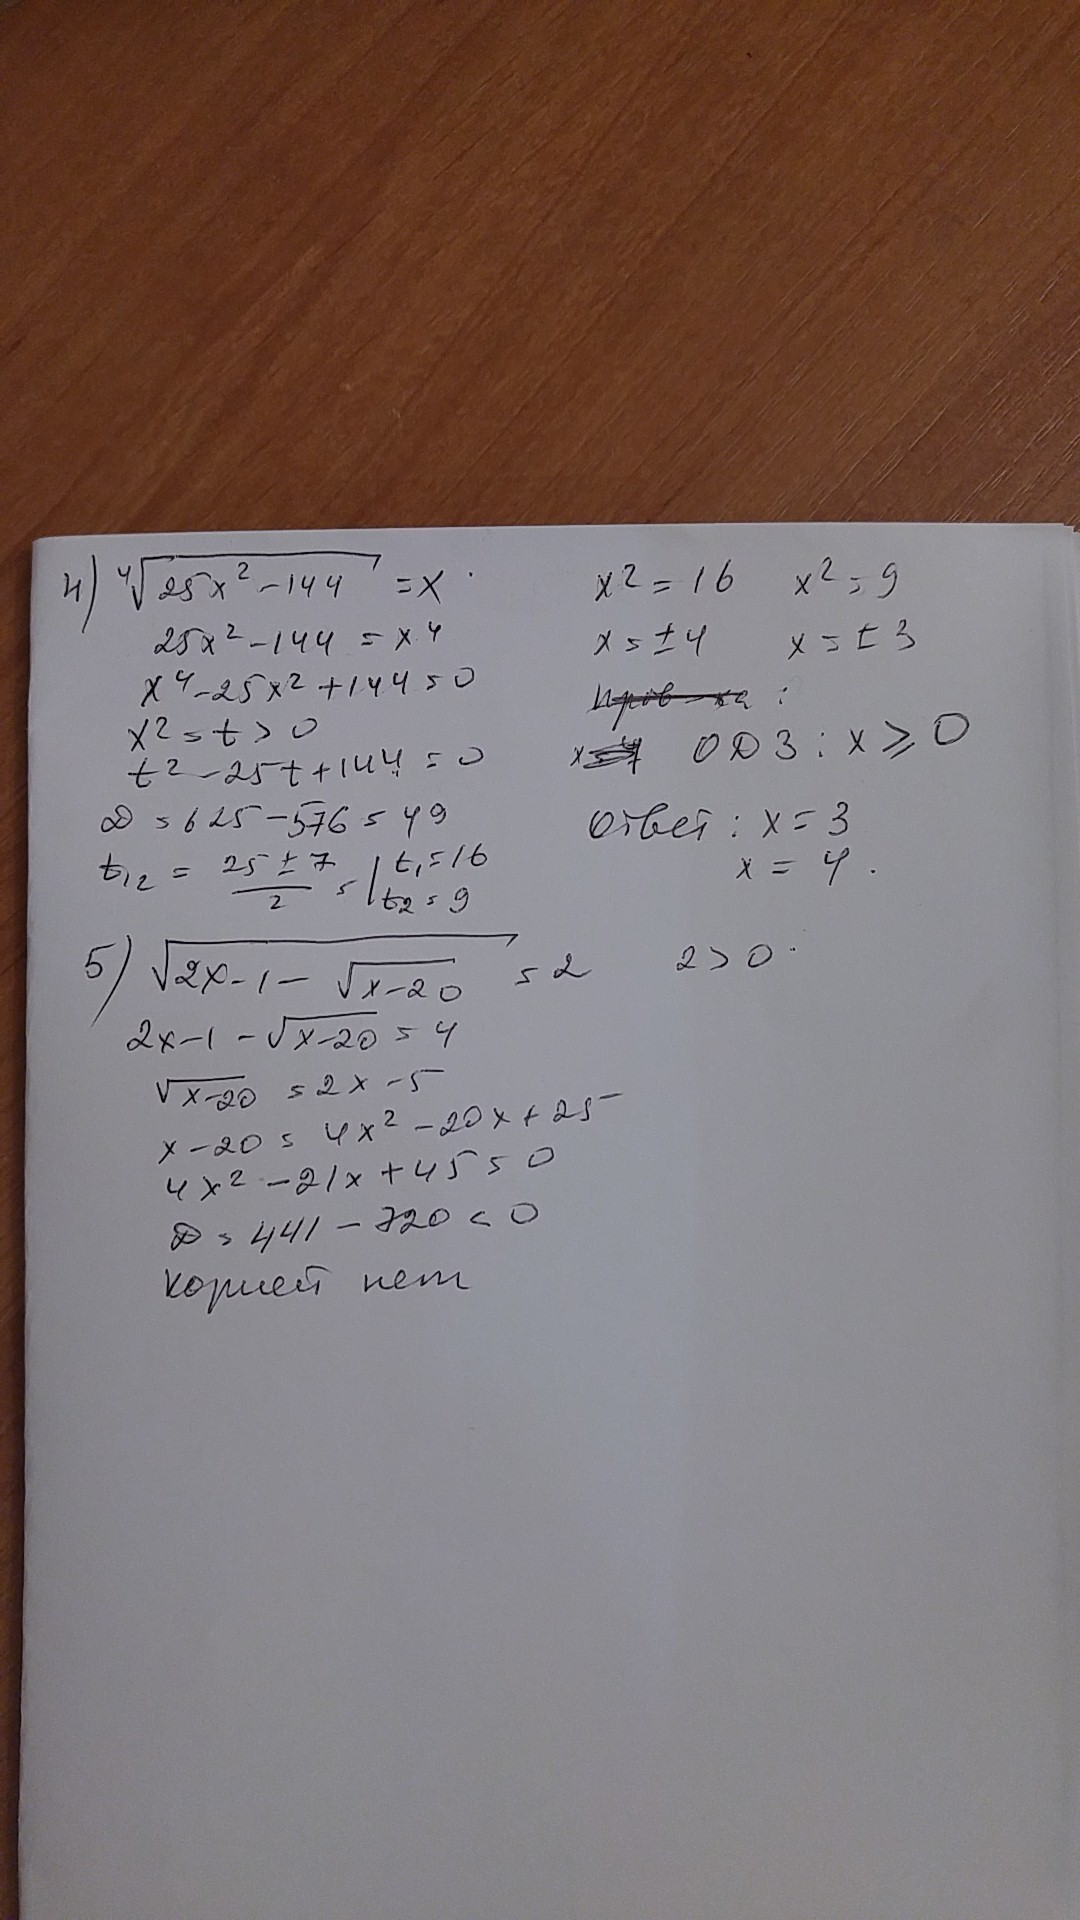 4) ⁴√(25x² - 144) = x
25x² - 144 = x⁴
x⁴ - 25x² + 144 = 0
x² = t > 0
t² - 25t + 144 = 0
D = 625 - 576 = 49
t₁₂ = (25 ± 7)/2 = | t₁ = 16
t₂ = 9
x² = 16 x² = 9
x = ±4 x = ±3
:
ОДЗ: x ⩾ 0
Ответ: x = 3
x = 4.
5) √(2x - 1 - √(x - 20)) = 2 2 > 0.
2x - 1 - √(x - 20) = 4
√(x - 20) = 2x - 5
x - 20 = 4x² - 20x + 25
4x² - 21x + 45 = 0
D = 441 - 720 < 0
Корней нет